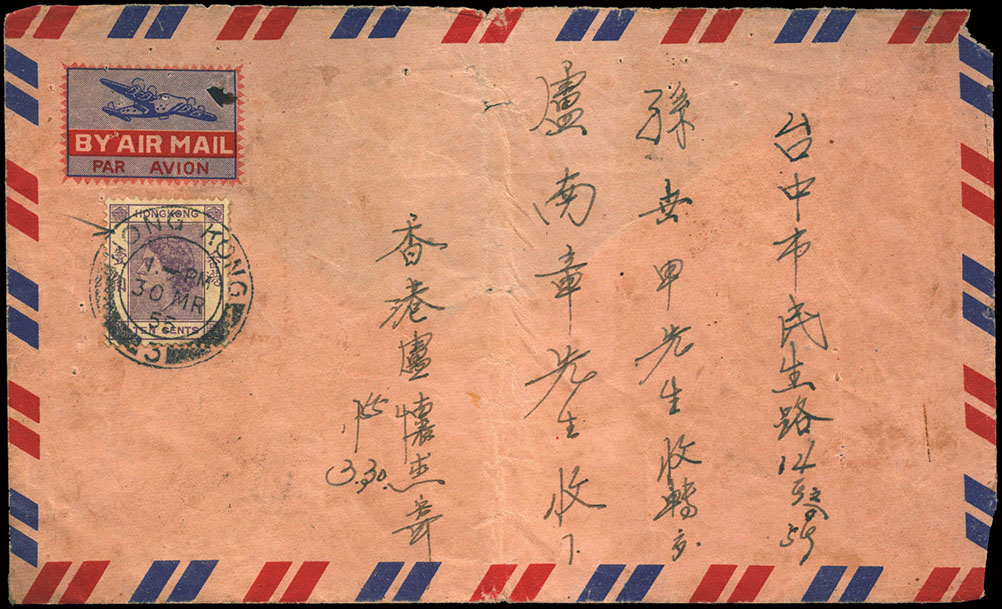 台中市民生路14號
孫岳甲先生收轉交
盧南章先生收
香港盧懷杰寄
3.30.
BY AIR MAIL
PAR AVION
HONG KONG
TEN CENTS
HONG KONG
PM
30 MR
55
3